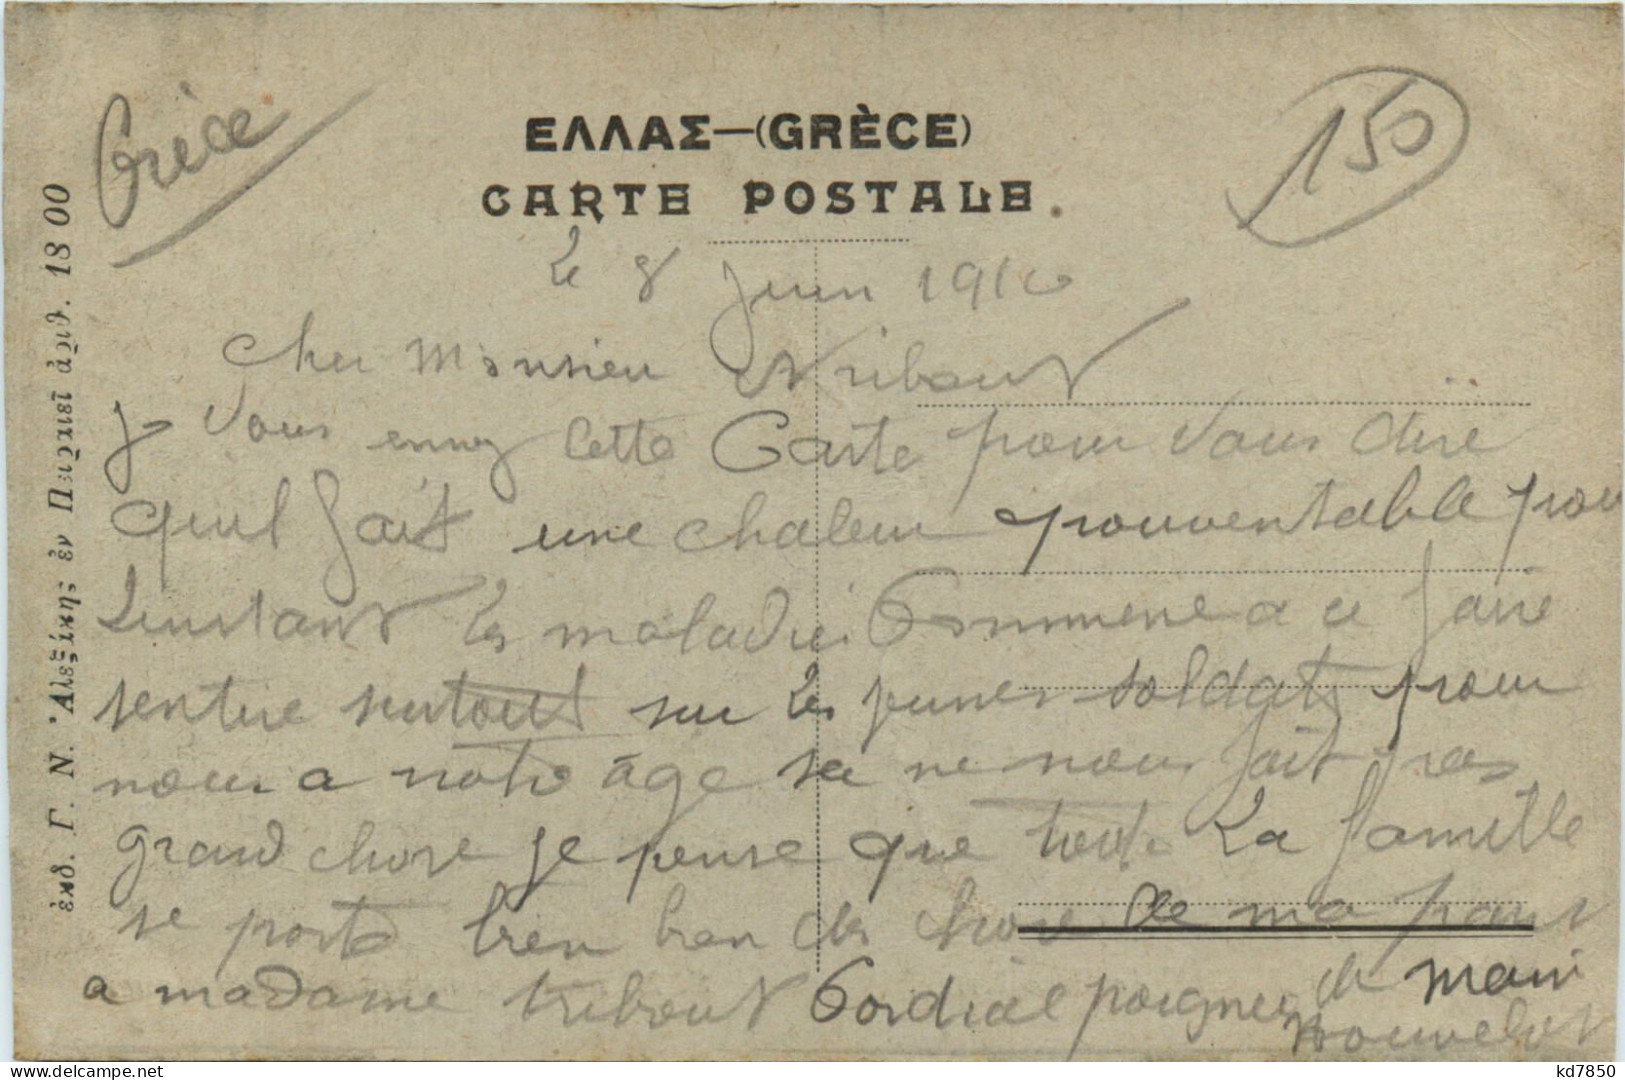 Grèce
150
ΕΛΛΑΣ—(GRÈCE)
CARTE POSTALE.
ἐκδ. Γ. Ν. Ἀλεξάκης ἐν Πειραιεῖ ἀριθ. 18 00
Le 8 Juin 1916
Cher Monsieur Tribout
Je vous envoy cette Carte pour vous dire
quil fait une chaleur epouventable pour
linstant les maladies Commence a ce faire
sentire surtout sur les jeunes soldats pour
nous a notre âge sa ne nous fait pas
grand chose je pense que toute La famille
se porte bien bien des chose de ma part
a madame tribout Cordial poignee de main